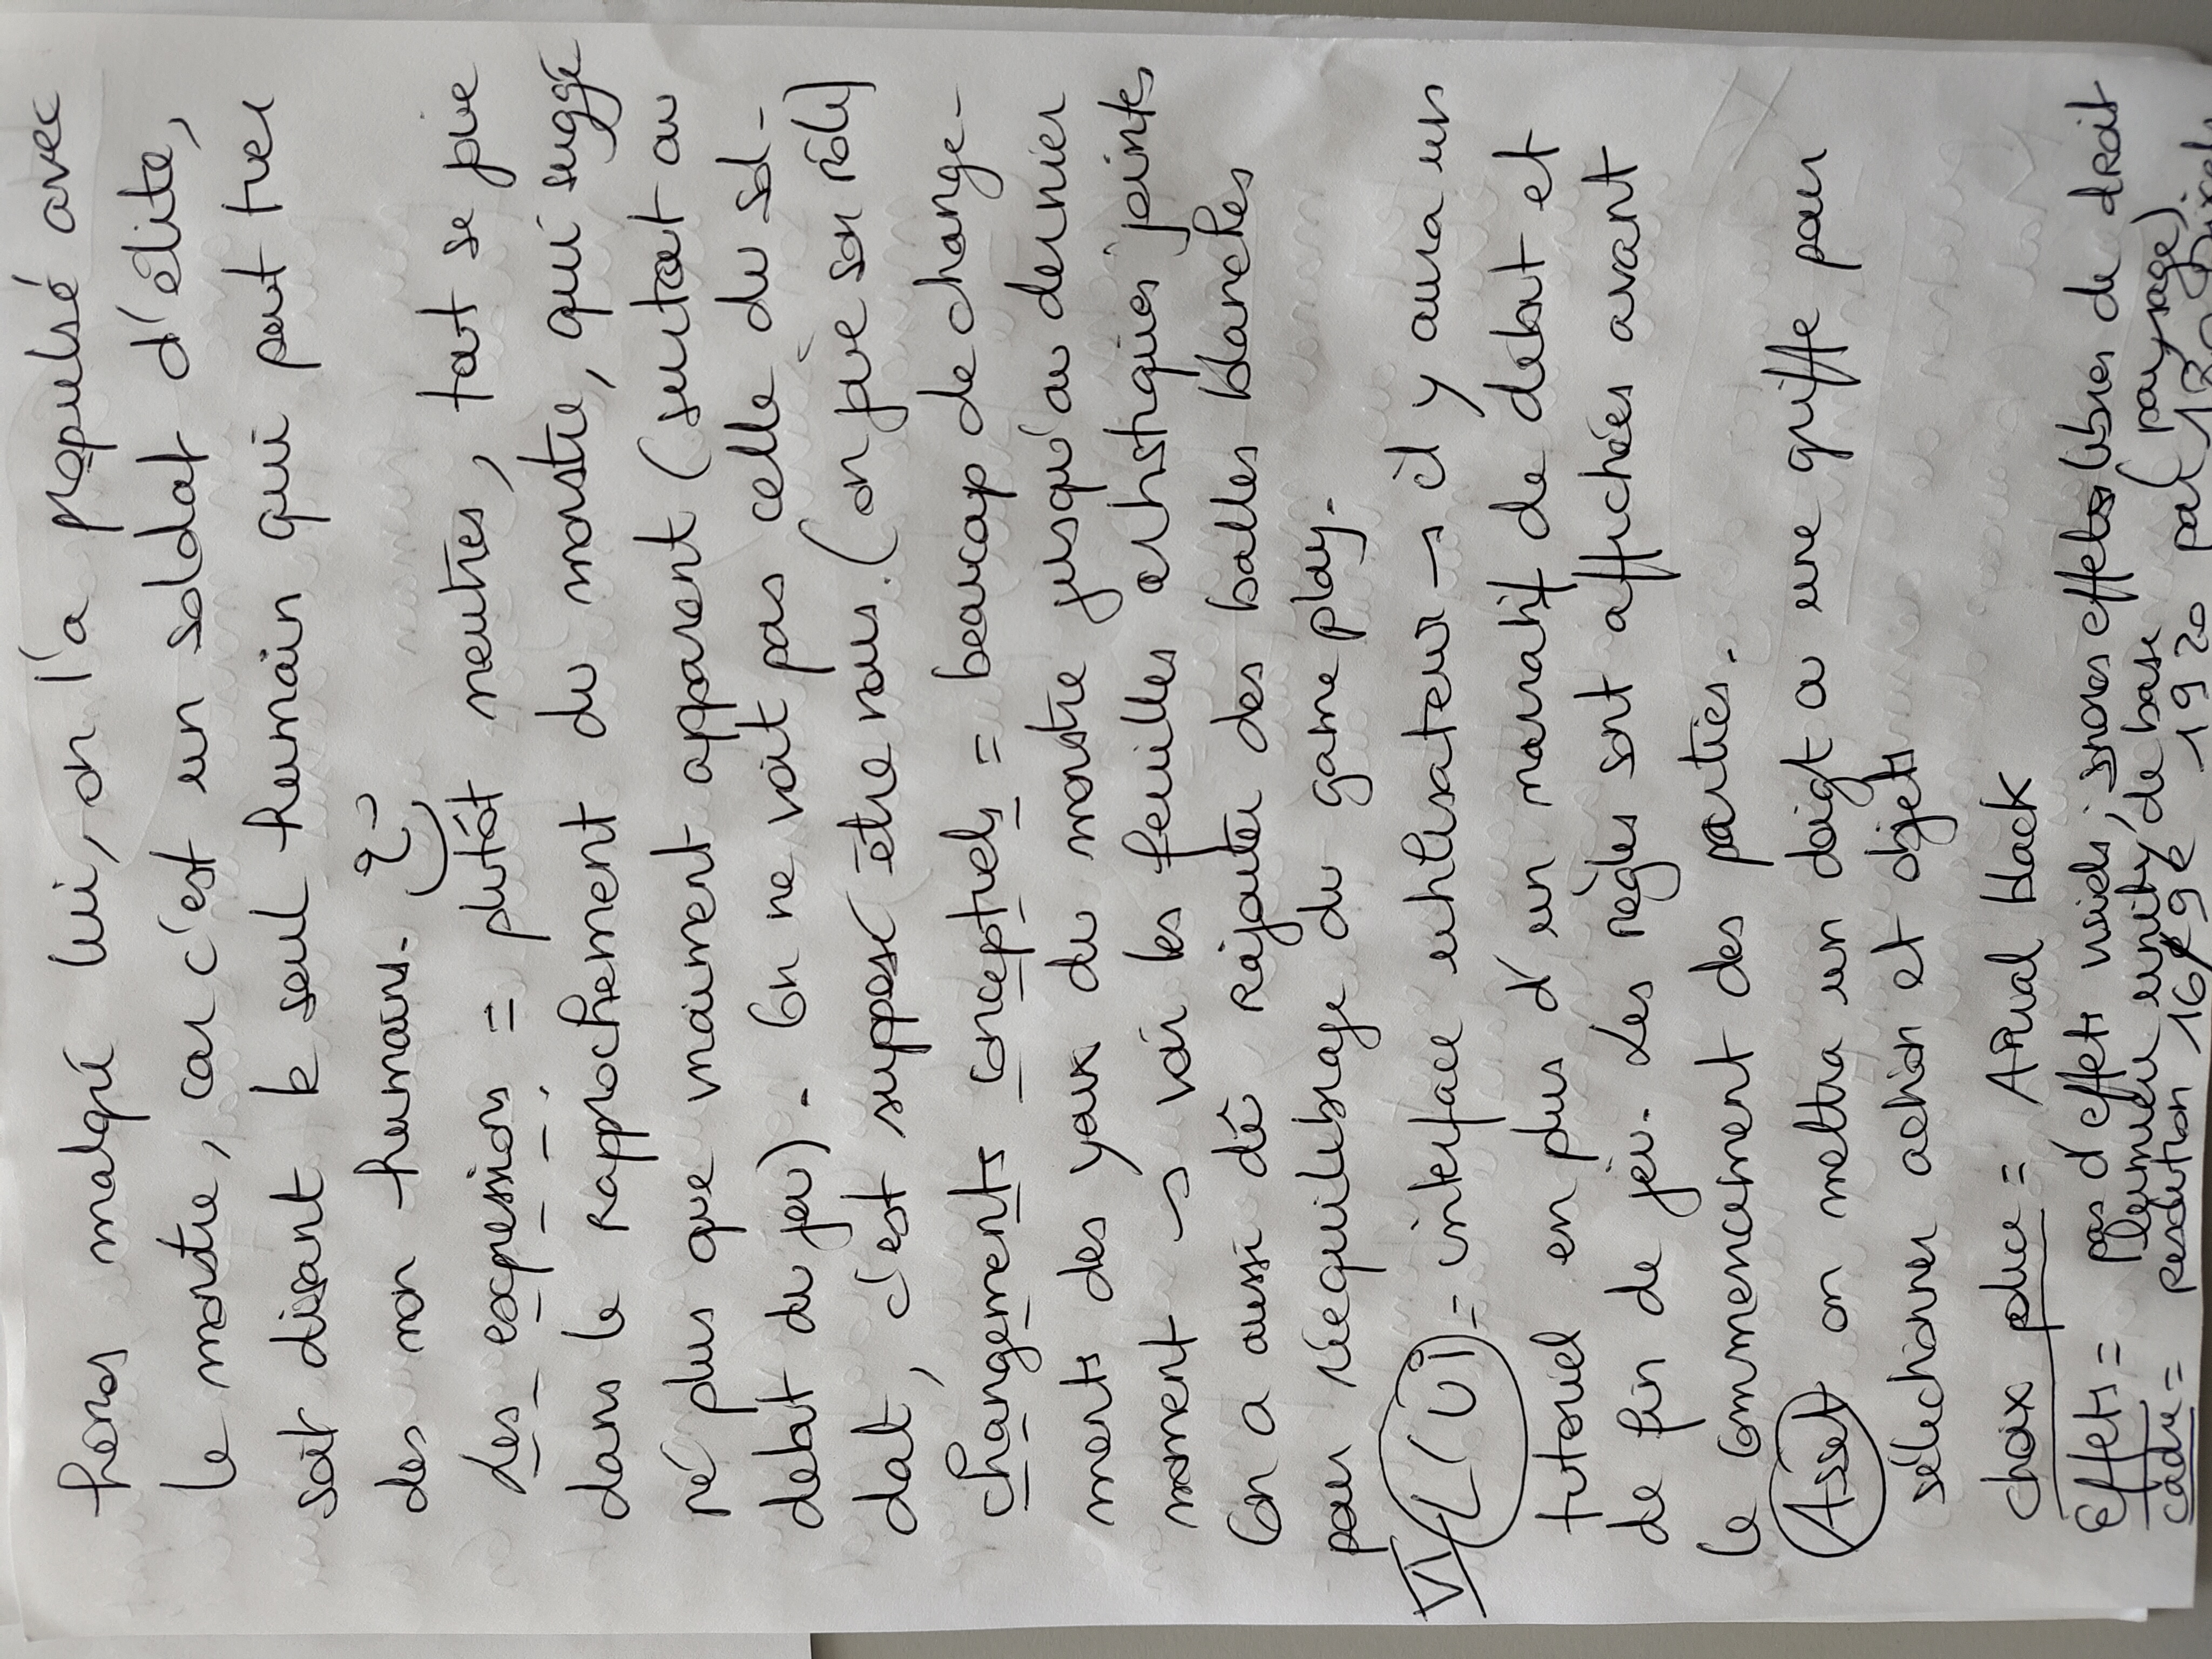 heros malgré lui, on l'a propulsé avec
le monstre, car c'est un soldat d'élite,
soit disant le seul humain qui peut tuer
des non humains.
Les expressions = plutôt neutres, tout se joue
dans le rapprochement du monstre, qui suggé
ré plus que vraiment apparent (surtout au
debut du jeu). On ne voit pas celle du sol-
dat, c'est supposé être nous. (on joue son rôle)
changements conceptuels = beaucoup de change-
ments des yeux du monstre jusqu'au dernier
moment → voir les feuilles artistiques jointes
On a aussi dû rajouter des balles blanches
pour réequilibrage du game play.
VI L'UI = interface utilisateur → il y aura un
tutoriel en plus d'un narratif de debut et
de fin de jeu. Les règles sont affichées avant
le commencement des parties.
Asset on mettra un doigt ou une griffe pour
sélectionner action et objets
choix police = Arial black
Effets = pas d'effets visuels ; sonores effets libres de droit
lumière unity de base (paysage).
cadre = resolution 16/9e 1920 par pixels